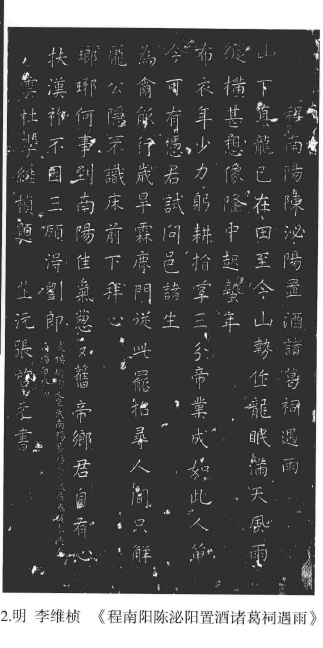 程南陽陳泌陽置酒諸葛祠遇雨
山下真龍已在田至今山勢作龍眠滿天風雨
縱橫甚想像隆中起蟄年
布衣年少力躬耕抵掌三分帝業成如此人
今可有憑君試問邑諸生
為行歲旱霖鹿門從此罷招尋人間只解
龐公隱不識床前下拜心
瑯琊何事到南陽佳氣蔥〻舊帝鄉君自有心
扶漢祚不因三顧得劉郎
雲杜李維楨題 上元張書
2.明 李维桢 《程南阳陈泌阳置酒诸葛祠遇雨》